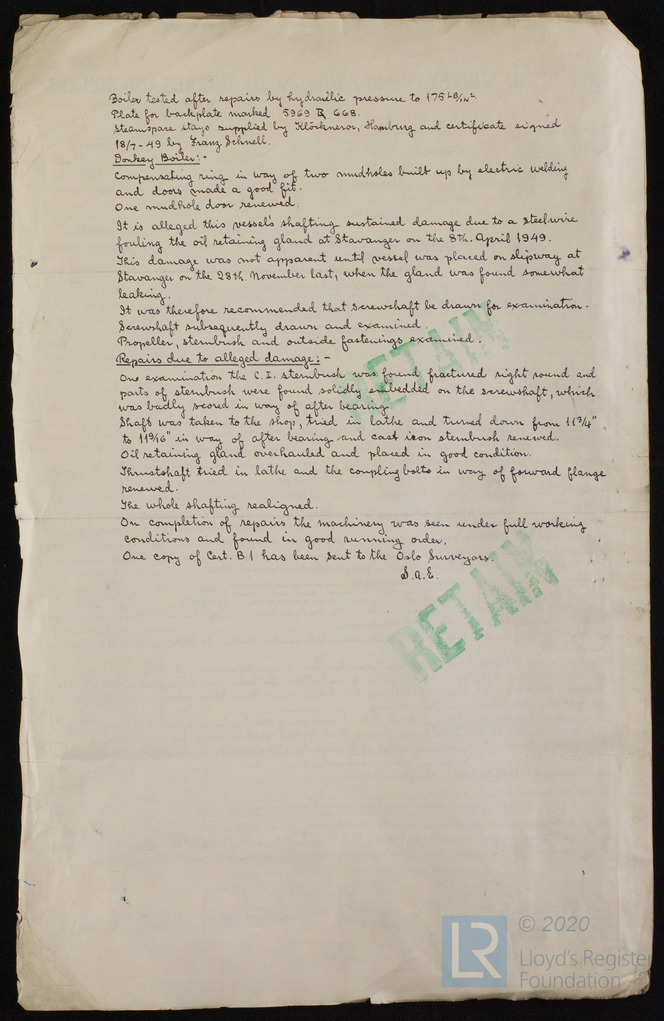 Boiler tested after repairs by hydraulic pressure to 175 LB/IN²
Plate for backplate marked 5969 R 668.
Steamspace stays supplied by Klöckneror, Hamburg and certificate signed
18/7-49 by Franz Schnell.
Donkey Boiler:-
Compensating ring in way of two mudholes built up by electric welding
and doors made a good fit.
One mudhole door renewed.
It is alleged this vessel's shafting sustained damage due to a steelwire
fouling the oil retaining gland at Stavanger on the 8th. April 1949.
This damage was not apparent until vessel was placed on slipway at
Stavanger on the 28th. November last, when the gland was found somewhat
leaking.
It was therefore recommended that screwshaft be drawn for examination.
Screwshaft subsequently drawn and examined
Propeller, sternbush and outside fastenings examined.
RETAIN
Repairs due to alleged damage:-
One examination the C.I. sternbush was found fractured right round and
parts of sternbush were found solidly embedded on the screwshaft, which
was badly scored in way of after bearing.
Shaft was taken to the shop, tried in lathe and turned down from 11 3/4"
to 11 9/16" in way of after bearing and cast iron sternbush renewed.
Oil retaining gland overhauled and placed in good condition.
Thrustshaft tried in lathe and the coupling bolts in way of forward flange
renewed.
The whole shafting realigned.
On completion of repairs the machinery was seen under full working
conditions and found in good running order.
One copy of Cert. B 1 has been sent to the Oslo Surveyors.
S.A.E.
RETAIN
LR
© 2020
Lloyd's Register
Foundation